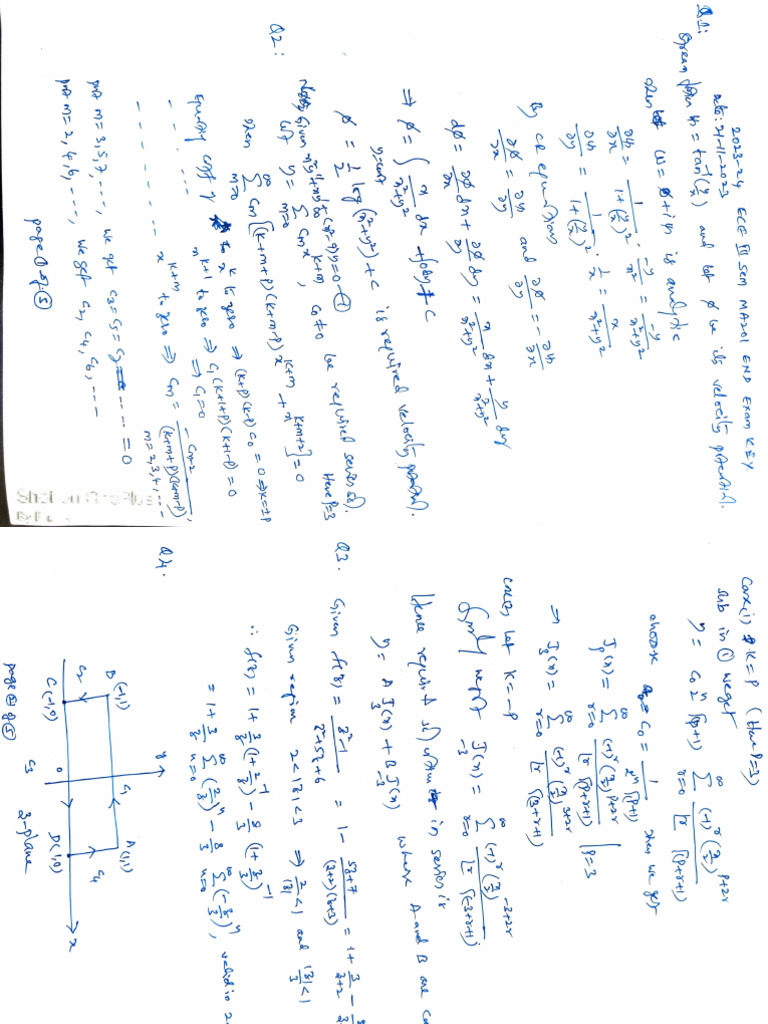 2023-24 ECE III SEM MA201 END EXAM KEY
Date: 21-11-2023
Q1:
Given ψ = tan⁻¹(y/x) and let φ be its velocity potential.
then w = φ + iψ is analytic
∂ψ/∂x = 1/(1+(y/x)²) · -y/x² = -y/(x²+y²)
∂ψ/∂y = 1/(1+(y/x)²) · 1/x = x/(x²+y²)
By CR equations
∂φ/∂x = ∂ψ/∂y and ∂φ/∂y = -∂ψ/∂x
dφ = ∂φ/∂x dx + ∂φ/∂y dy = x/(x²+y²) dx + y/(x²+y²) dy
⇒ φ = ∫ x/(x²+y²) dx + ∫0 dy + C
y=const
φ = 1/2 log(x²+y²) + C is required velocity potential.
Q2:
Given x²y''+xy'+(x²-9)y=0 —① Here P=3
Let y = Σ m=0 ∞ Cm x^(k+m), C₀≠0 be required series sol.
then Σ m=0 ∞ Cm[(k+m+p)(k+m-p) x^(k+m) + x^(k+m+2)] = 0
Equating coeff of x^k to zero ⇒ (k+p)(k-p)C₀ = 0 ⇒ k=±p
- - - - - x^(k+1) to zero ⇒ C₁(k+1+p)(k+1-p) = 0
⇒ C₁=0
- - - - - - - x^(k+m) to zero ⇒ Cm = -Cm-2/((k+m+p)(k+m-p)),
m=2,3,4,----
put m=3,5,7,----, we get C₃=C₅=C₇=----=0
put m=2,4,6,----, we get C₂, C₄, C₆, ---
page ① of ⑤
Shot on OnePlus
Case(i) k=p (Here P=3)
Sub in ① we get
y = C₀ 2^p Γ(p+1) Σ r=0 ∞ (-1)^r (x/2)^(p+2r) / (Γr Γ(p+r+1))
choose C₀ = 1/(2^p Γ(p+1)) then we get
Jp(x) = Σ r=0 ∞ (-1)^r (x/2)^(p+2r) / (Γr Γ(p+r+1)) | P=3
⇒ J₃(x) = Σ r=0 ∞ (-1)^r (x/2)^(3+2r) / (Γr Γ(3+r+1))
case(ii) let k=-p
Similarly we get J₋₃(x) = Σ r=0 ∞ (-1)^r (x/2)^(-3+2r) / (Γr Γ(-3+r+1))
Hence required solution in series is
y = A J₃(x) + B J₋₃(x) where A and B are
Q3.
Given f(z) = (z²-1)/(z²+5z+6) = 1 - (5z+7)/((z+2)(z+3)) = 1 + 3/(z+2) -
Given region 2<|z|<3 ⇒ 2/|z|<1 and |z|/3<1
∴ f(z) = 1 + 3/z (1+2/z)⁻¹ - 8/3 (1+z/3)⁻¹
= 1 + 3/z Σ n=0 ∞ (-2/z)^n - 8/3 Σ n=0 ∞ (-z/3)^n, valid in
Q4.
y
B(-1,1)
C₁
A(1,1)
C₂
C₄
C(-1,0)
0
D(1,0)
x
C₃
z-plane
page ② of ⑤